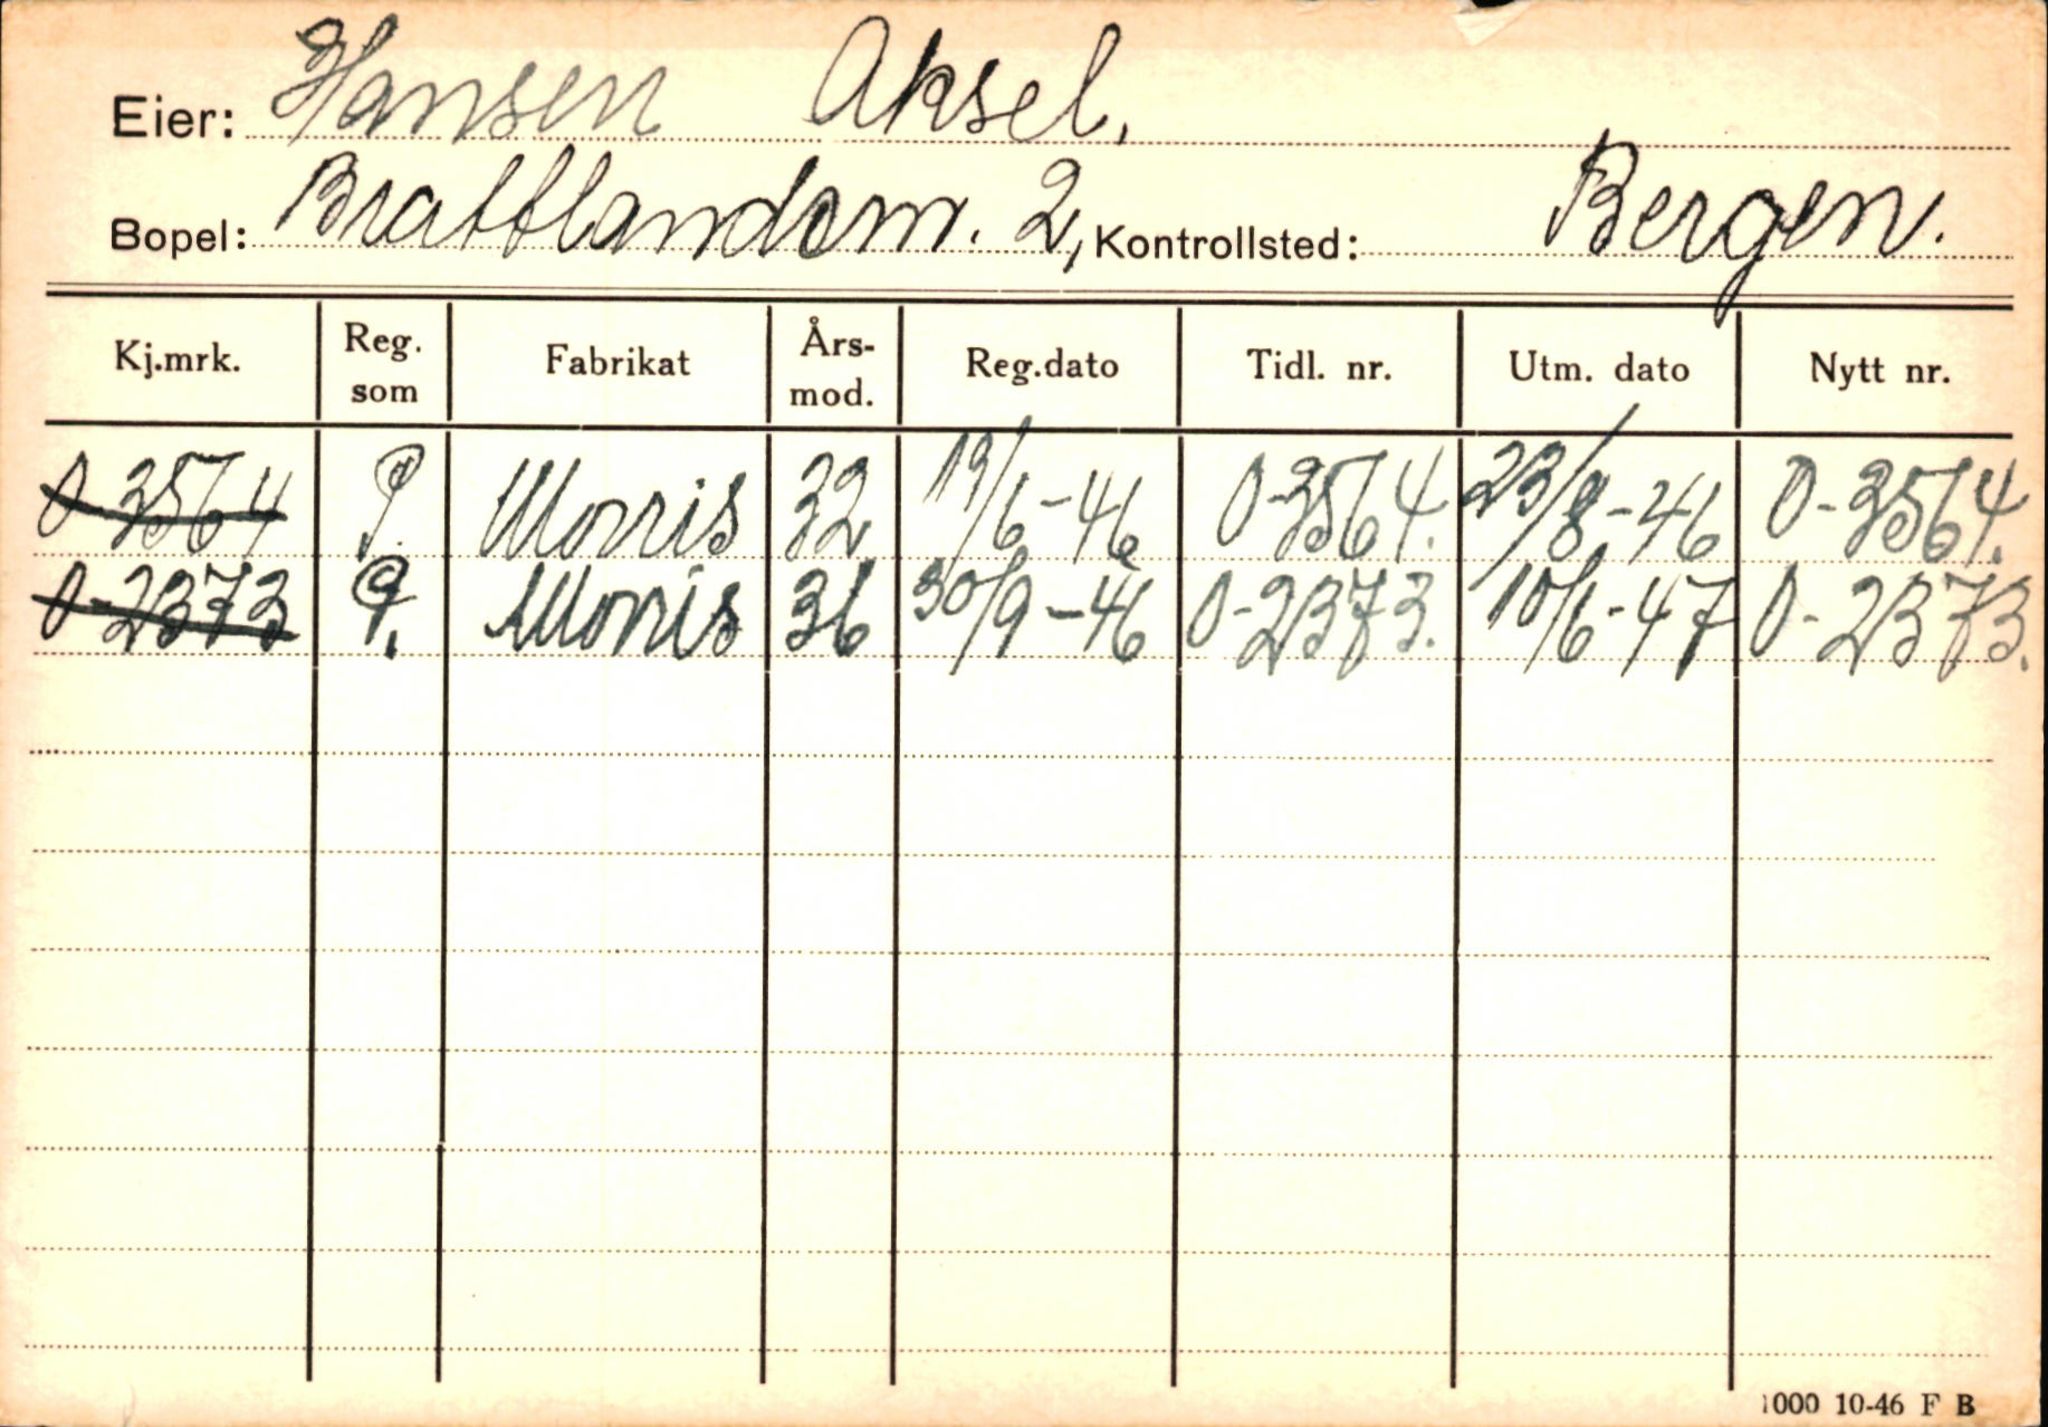 Eier: Hansen Aksel.
Bopel: Brattlandsm. 2, Kontrollsted: Bergen.
Kj.mrk. Reg. som Fabrikat Års-mod. Reg.dato Tidl. nr. Utm. dato Nytt nr.
O-3564 P. Morris 32 19/6-46 O-3564. 23/8-46 O-3564.
O-2373 P. Morris 36 30/9-46 O-2373. 10/6-47 O-2373.
1000 10-46 F B